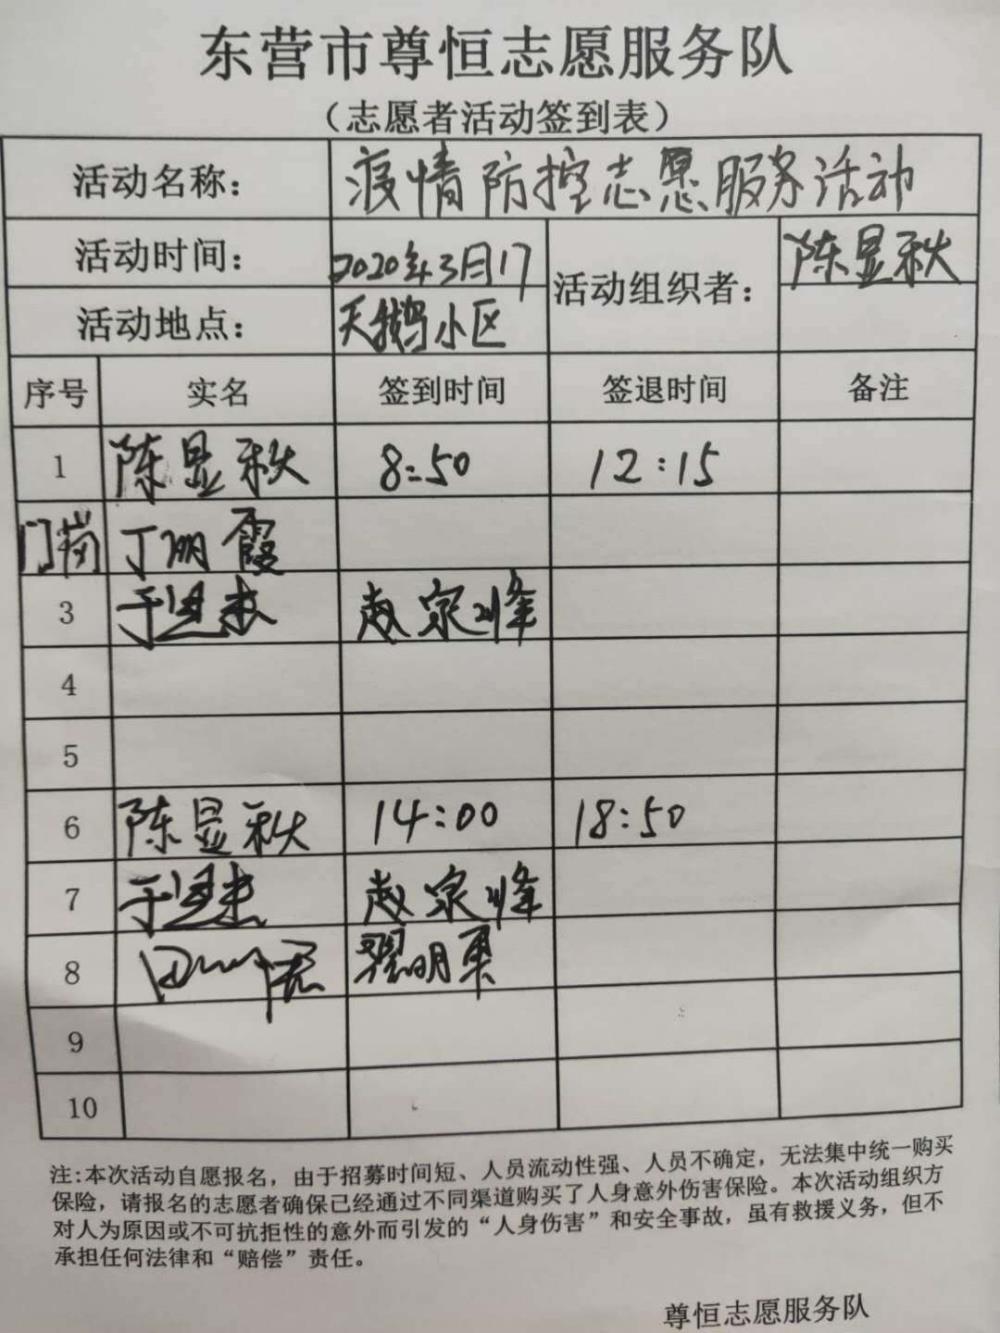 东营市尊恒志愿服务队
（志愿者活动签到表）
活动名称： 疫情防控志愿服务活动
活动时间： 2020年3月17 活动组织者： 陈显秋
活动地点： 天鹅小区
序号 实名 签到时间 签退时间 备注
1 陈显秋 8:50 12:15
门岗 丁丽霞
3 赵家峰
4
5
6 陈显秋 14:00 18:50
7 赵家峰
8
9
10
注:本次活动自愿报名，由于招募时间短、人员流动性强、人员不确定，无法集中统一购买
保险，请报名的志愿者确保已经通过不同渠道购买了人身意外伤害保险。本次活动组织方
对人为原因或不可抗拒性的意外而引发的“人身伤害”和安全事故，虽有救援义务，但不
承担任何法律和“赔偿”责任。
尊恒志愿服务队